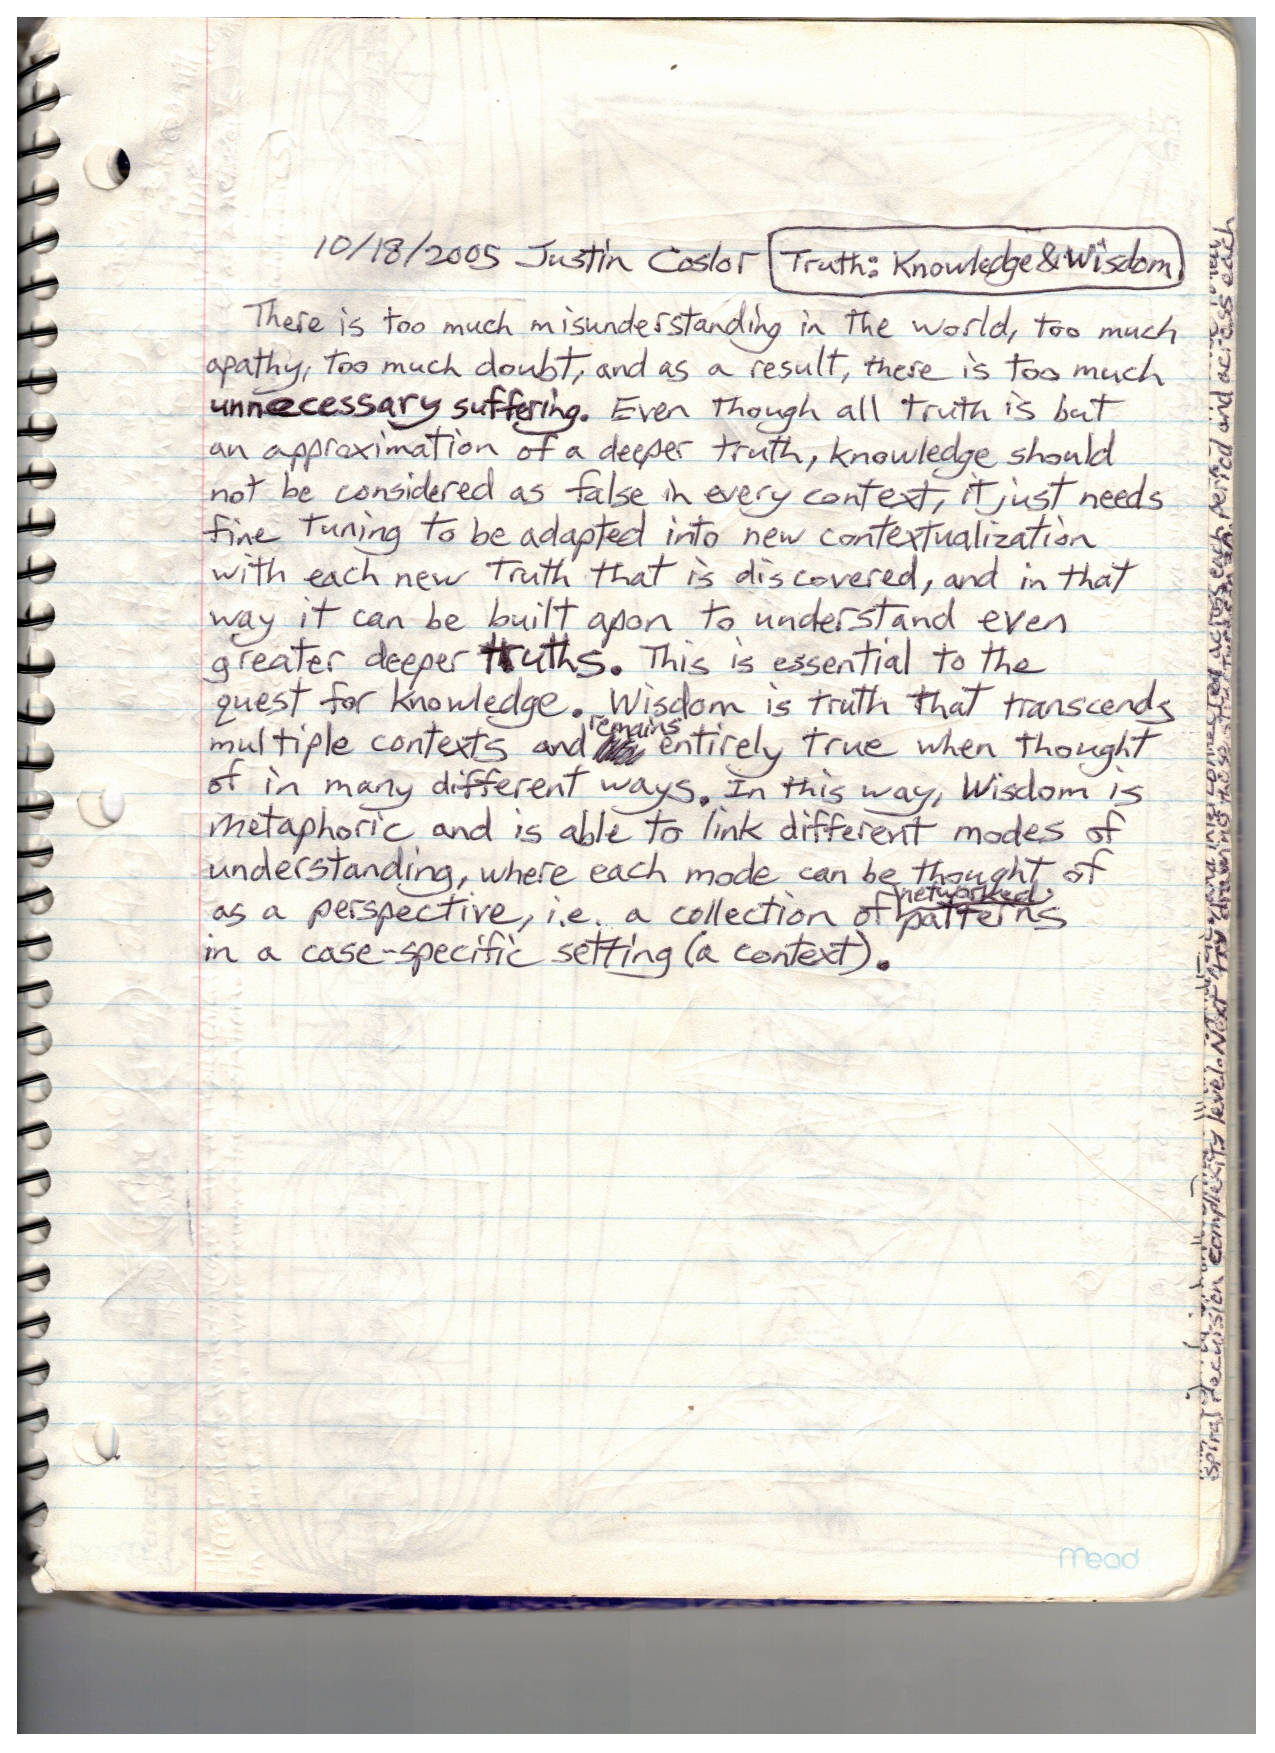 10/18/2005 Justin Coslor Truth: Knowledge & Wisdom
There is too much misunderstanding in the world, too much
apathy, too much doubt, and as a result, there is too much
unnecessary suffering. Even though all truth is but
an approximation of a deeper truth, knowledge should
not be considered as false in every context, it just needs
fine tuning to be adapted into new contextualization
with each new truth that is discovered, and in that
way it can be built apon to understand even
greater deeper truths. This is essential to the
quest for knowledge. Wisdom is truth that transcends
multiple contexts and remains entirely true when thought
of in many different ways. In this way, Wisdom is
metaphoric and is able to link different modes of
understanding, where each mode can be thought of
as a perspective, i.e. a collection of networked patterns
in a case-specific setting (a context).
Mead
spiral recursion complexity level. Next try drawing these structures
period and across each